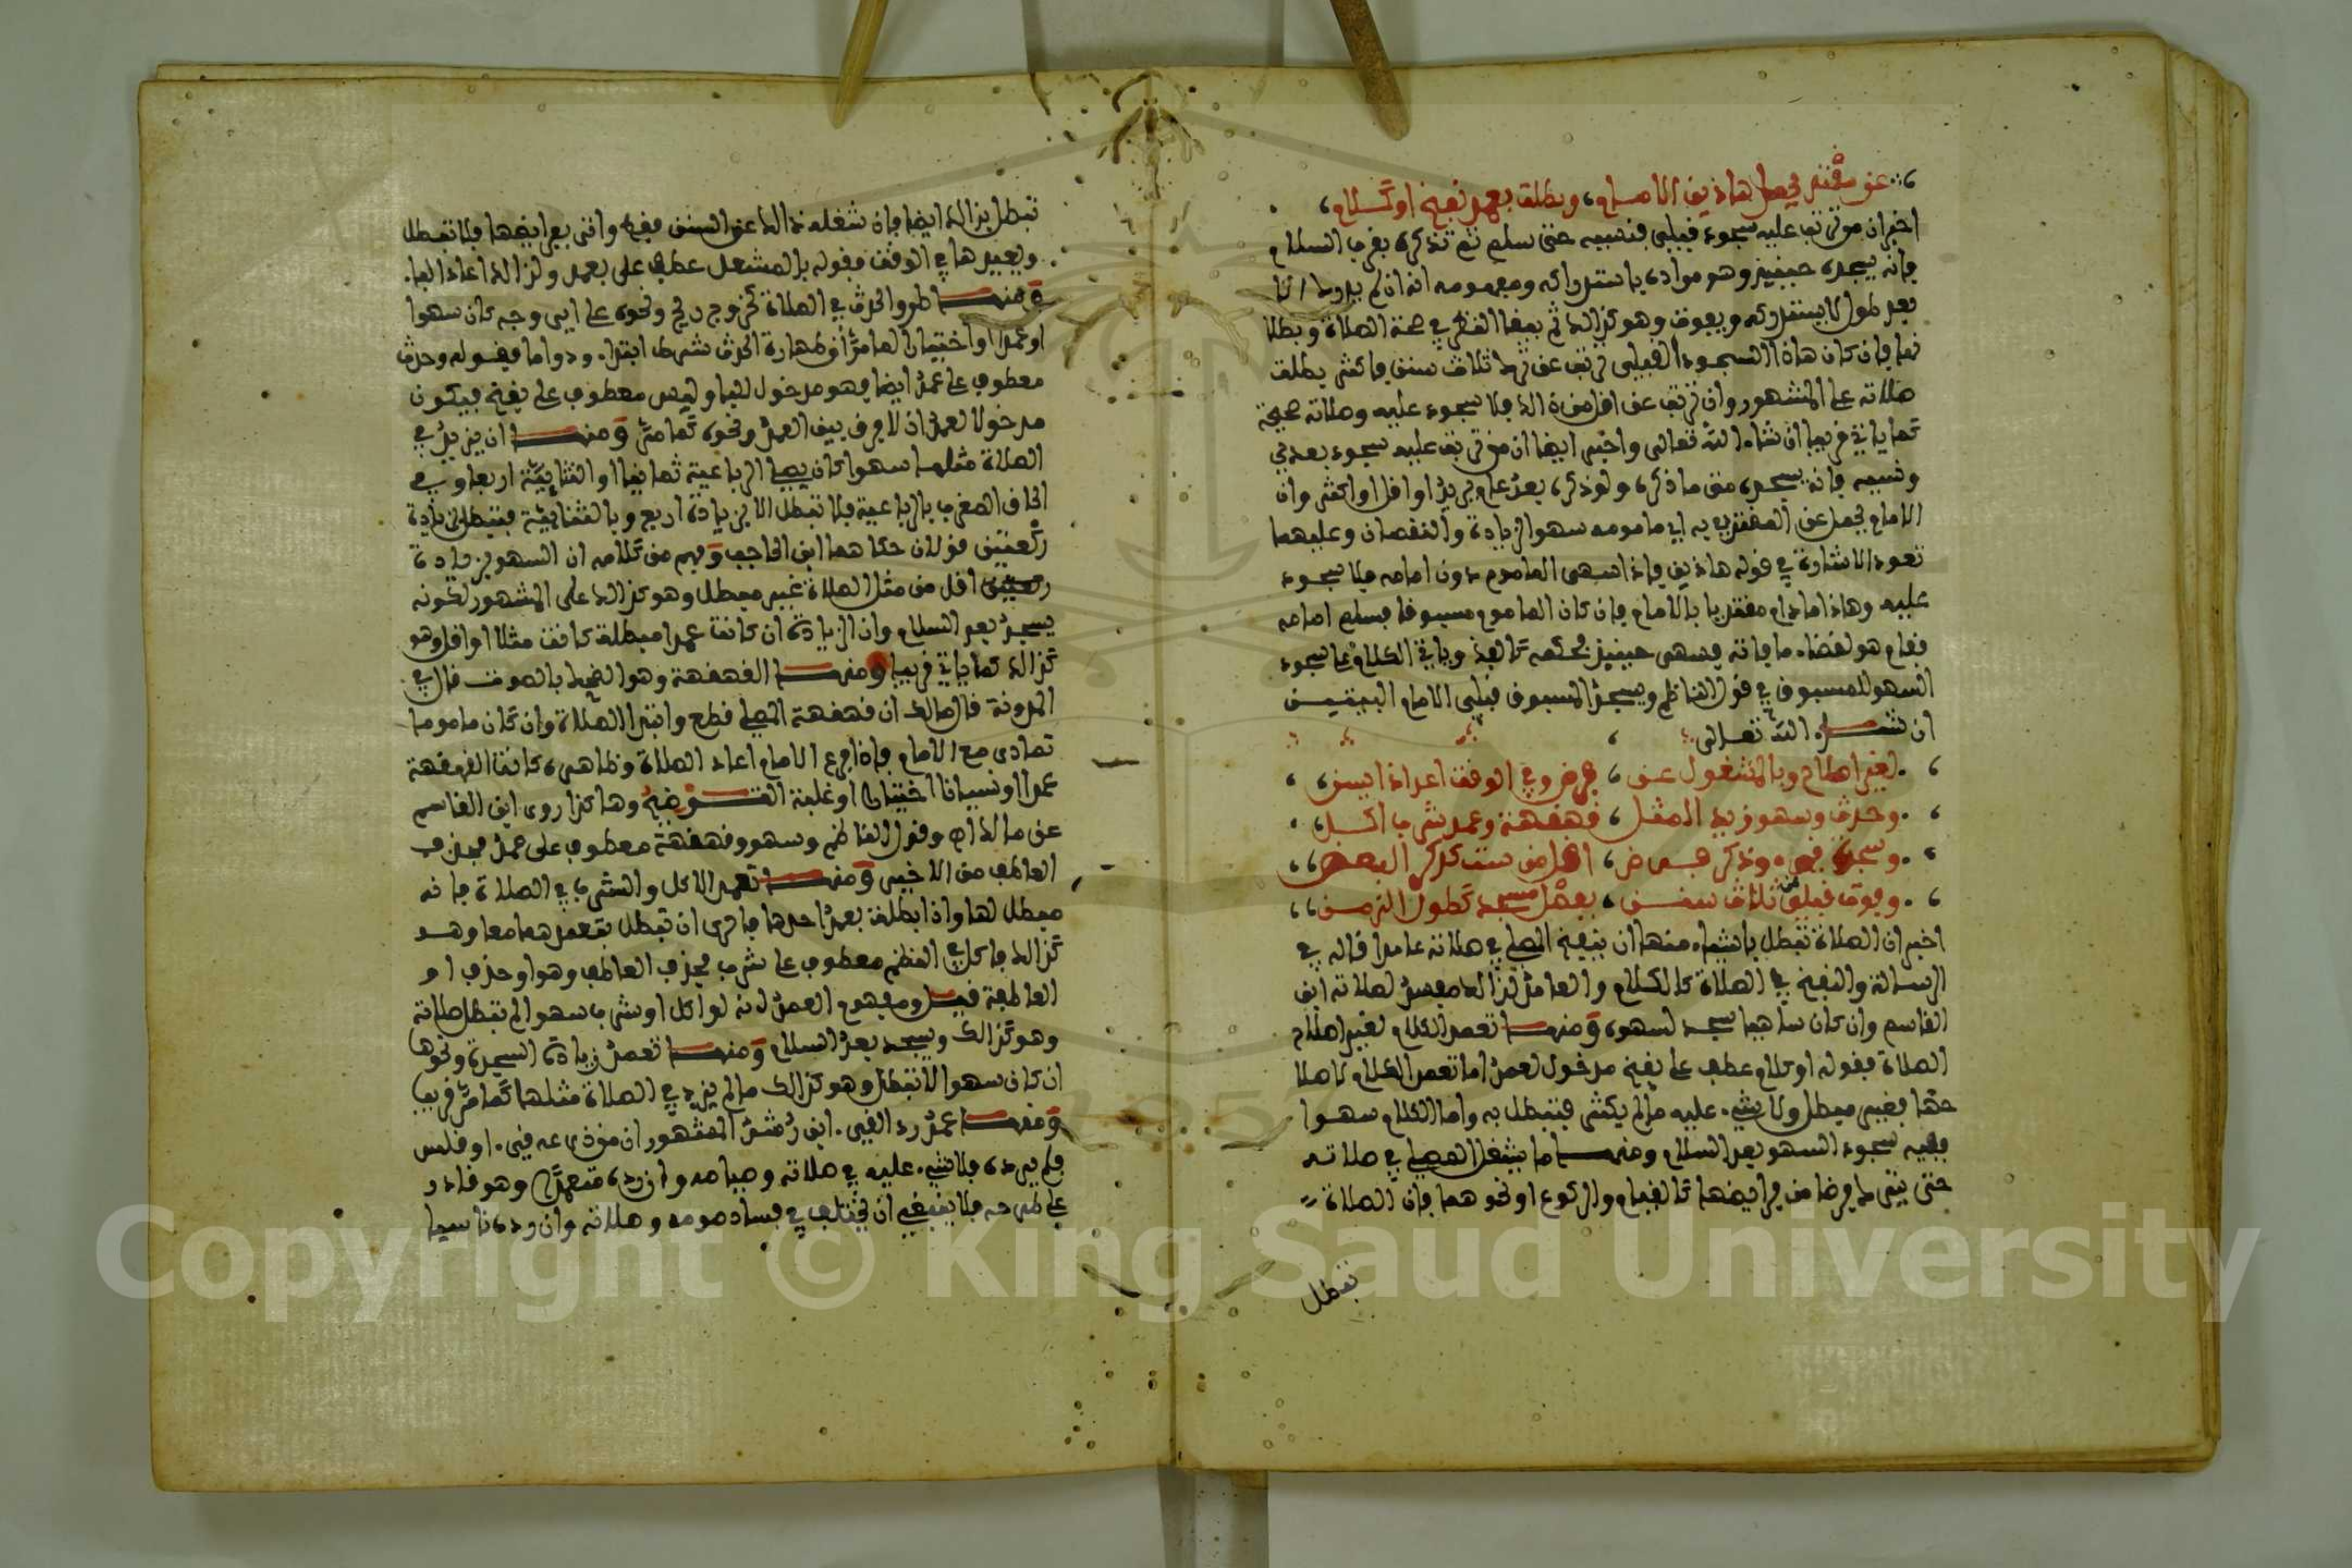 عن مقتد يحمل هاذين الامام، وبطلت بعمد نفخ او كلام،
اخبر ان من ترتب عليه سجود قبلي فنسيه حتى سلم ثم تذكره بقرب السلام
فانه يسجده حينيذ وهو مراده باستدراكه ومفهومه انه ان لم
بعد طول لا يستدركه ويفوت وهو كذالك ثم يبقا النظر في صحة الصلاة وبطلا
نها فان كان هاذا السجود القبلي ترتب عن ترك ثلاث سنن فاكثر بطلت
صلاته على المشهور وان ترتب عن اقل من ذالك فلا سجود عليه وصلاته صحيحة
كما ياتي قريبا ان شاء الله تعالى واخبر ايضا ان من ترتب عليه سجود بعدي
ونسيه فانه يسجده متى ما ذكره ولو ذكره بعد عام يريد او اقل او اكثر وان
الامام يحمل عن المقتدي به اي مامومه سهو الزيادة والنقصان وعليهما
تعود الاشارة في قوله هاذين فاذا سهى الماموم دون امامه فلا سجود
عليه وهاذا ما دام مقتديا بالامام فان كان الماموم مسبوقا فسلم امامه
فقام هو لقضاء ما فاته فسهى حينيذ فحكمه كالفذ وياتي الكلام على سجود
السهو للمسبوق في قول الناظم ويسجد المسبوق قبلي الامام البيتيـن
ان شـاء الله تعـالى
لغير اصلاح وبالمشغل عن، فرض وفي الوقت اعد اذا يسن،
وحدث وسهو زيد المثل، قهقهة وعمد شرب اكـل،
وسجدة قيء وذكر فـرض، اقل من ست كذكر البعض،
وفوت قبلي ثلاث سنـن، بفصل مسجد كطول الزمـن،
اخبر ان الصلاة تبطل باشياء منها ان ينفخ المصلي في صلاته عامدا قاله في
الرسالة والنفخ في الصلاة كالكلام والعامد لذالك مفسد لصلاته ابن
القاسم وان كان ساهيا سجد لسهوه ومنهـا تعمد الكلام لغير اصلاح
الصلاة فقوله او كلام عطف على نفخ مدخول لعمد اما تعمد الكلام لاصلا
حها فغير مبطل ولا شيء عليه ما لم يكثر فتبطل به واما الكلام سهـوا
ففيه سجود السهو بعد السلام ومنهـا ما يشغل المصلي في صلاته
حتى يترك فرضا من فرايضها كالقيام والركوع او نحوهما فان الصلاة
تبطل
تبطل بذالك ايضا فان شغله ذالك عن السنن فقط واتى بفرايضها فلا تبطل
ويعيدها في الوقت فقوله بالمشغل عطف على بعمد ولذالك اعاد البا.
ومنهـا طرو الحدث في الصلاة كخروج ريح ونحوه على اي وجه كان سهوا
او عمدا او اختيارا لما مر ان طهارة الحدث شرط ابتداء ودواما فقـوله وحدث
معطوف على عمد ايضا فهو مدخول للبا وليس معطوف على نفخ فيكون
مدخولا لعمد اذ لا فرق بين العمد ونحوه كما مر ومنهـا ان يزيد في
الصلاة مثلها سهوا كان يصلي الرباعية ثمانيا او الثنائية اربعا وفي
الحاق المغرب بالرباعية فلا تبطل الا بزيادة اربع وبالثنائية فتبطل بزيادة
ركعتين قولان حكاهما ابن الحاجب وفهم من كلامه ان السهو بزيادة
ركعتين اقل من مثل الصلاة غير مبطل وهو كذالك على المشهور لكونه
يسجد بعد السلام وان الزيادة ان كانت عمدا مبطلة كانت مثلا او اقل وهو
كذالك كما ياتي قريبا ومنهـا القهقهة وهو الضحك بالصوت قال في
المدونة قال مالك ان قهقهة المصلي قطع وابتدا الصلاة وان كان ماموما
تمادى مع الامام فاذا فرغ الامام اعاد الصلاة وظاهره كانت القهقهة
عمدا او نسيانا اختيارا او غلبة وهاكذا روى ابن القاسم
عن مالك وقول الناظم وسهو وقهقهة معطوف على عمد فحذف
العاطف من الاخير ومنهـا تعمد الاكل والشرب في الصلاة فانه
مبطل لها واذا بطلت بعمد احدها فاحرى ان تبطل بتعمدهما معا وهـو
كذالك فاكل في النظم معطوف على شرب فحذف العاطف وهو او حذف او
العاطفة قليـل ومفهوم العمد انه لو اكل او شرب سهوا لم تبطل صلاته
وهو كذالك ويسجد بعد السلام ومنهـا تعمد زيادة السجدة ونحوها
ان كان سهوا لا تبطل وهو كذالك ما لم يزد في الصلاة مثلها كما مر قريبا
ومنهـا عمد رد القيء ابن رشد المشهور ان من ذرعه قيء او قلس
فلم يرده فلا شيء عليه في صلاته وصيامه وان رده متعمدا وهو قادر
على طرحه فلا ينبغي ان يختلف في فساد صومه وصلاته وان رده ناسيا
Copyright © King Saud University